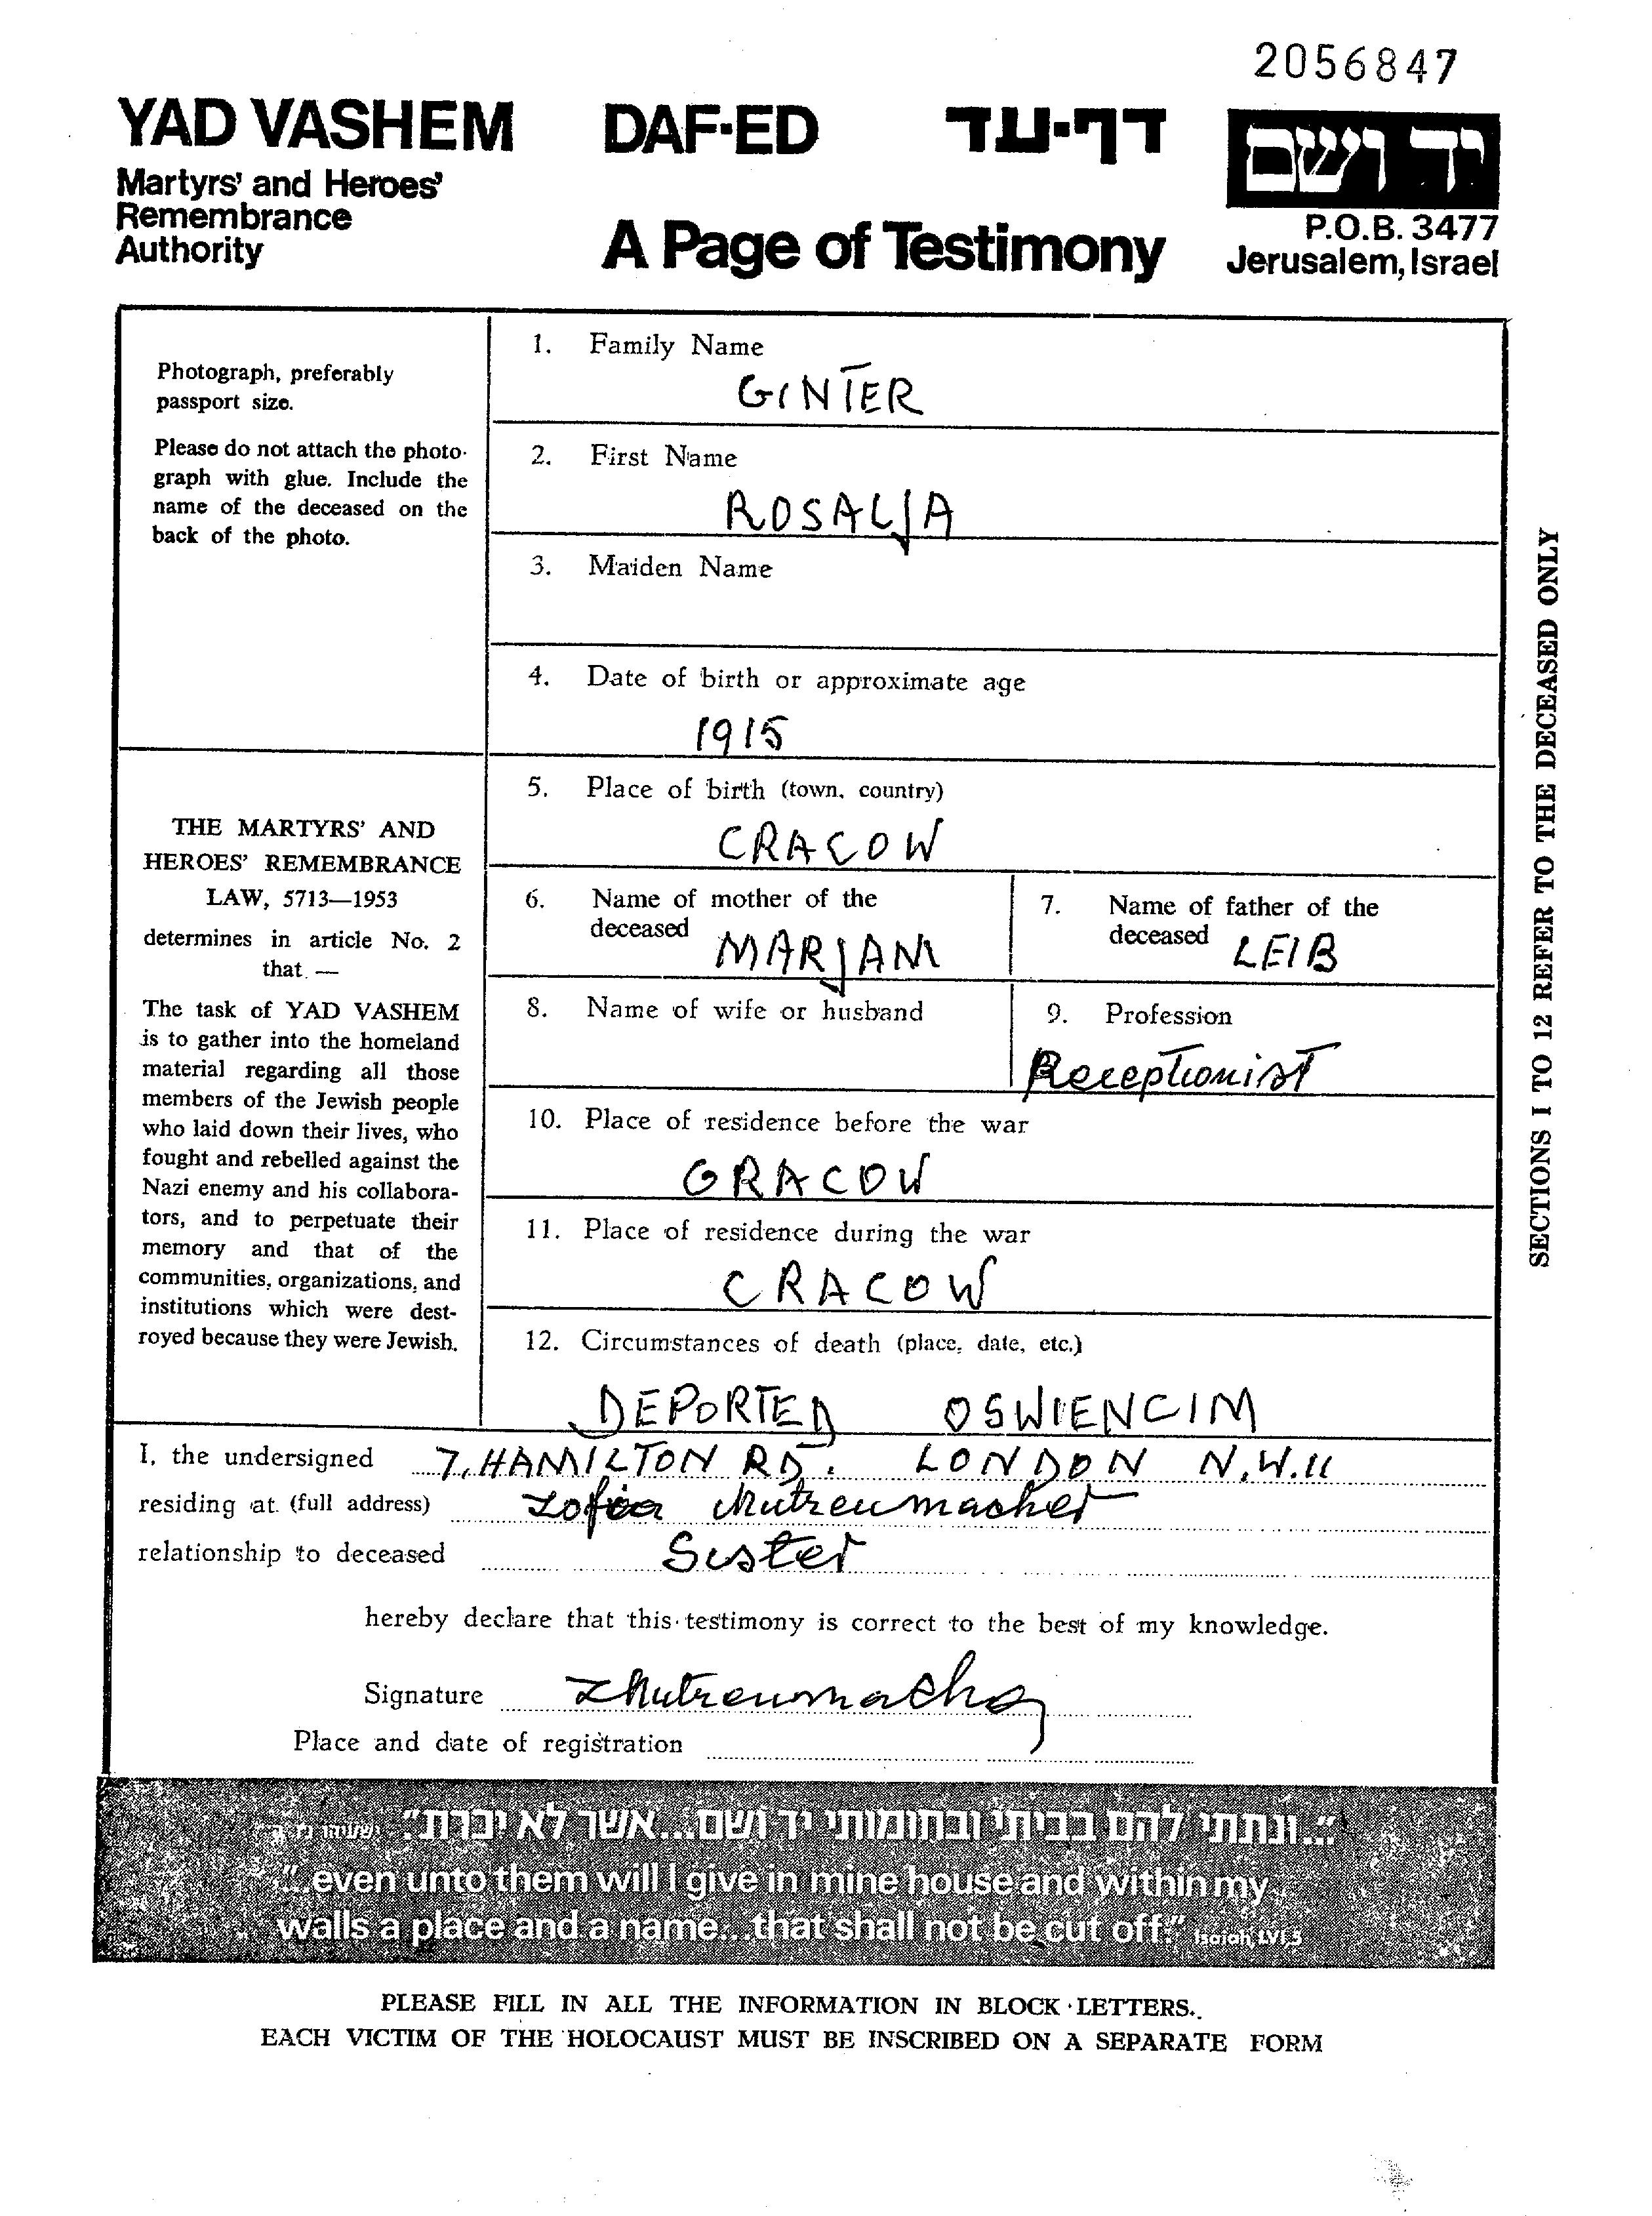 2056847
YAD VASHEM
Martyrs' and Heroes'
Remembrance
Authority
DAF-ED
דף-עד
A Page of Testimony
יד ושם
P.O.B. 3477
Jerusalem, Israel
Photograph, preferably
passport size.
Please do not attach the photo-
graph with glue. Include the
name of the deceased on the
back of the photo.
THE MARTYRS' AND
HEROES' REMEMBRANCE
LAW, 5713—1953
determines in article No. 2
that —
The task of YAD VASHEM
is to gather into the homeland
material regarding all those
members of the Jewish people
who laid down their lives, who
fought and rebelled against the
Nazi enemy and his collabora-
tors, and to perpetuate their
memory and that of the
communities, organizations, and
institutions which were dest-
royed because they were Jewish.
1. Family Name
GINTER
2. First Name
ROSALJA
3. Maiden Name
4. Date of birth or approximate age
1915
5. Place of birth (town, country)
CRACOW
6. Name of mother of the
deceased MARJAM
7. Name of father of the
deceased LEIB
8. Name of wife or husband
9. Profession
Receptionist
10. Place of residence before the war
CRACOW
11. Place of residence during the war
CRACOW
12. Circumstances of death (place, date, etc.)
DEPORTED OSWIENCIM
SECTIONS I TO 12 REFER TO THE DECEASED ONLY
I, the undersigned 7, HAMILTON RD. LONDON N.W.11
residing at (full address) Zofia
relationship to deceased Sister
hereby declare that this testimony is correct to the best of my knowledge.
Signature
Place and date of registration
"...ונתתי להם בביתי ובחומותי יד ושם...אשר לא יכרת". ישעיהו נו, ה
"...even unto them will I give in mine house and within my
walls a place and a name...that shall not be cut off." Isaiah, LVI,5
PLEASE FILL IN ALL THE INFORMATION IN BLOCK LETTERS.
EACH VICTIM OF THE HOLOCAUST MUST BE INSCRIBED ON A SEPARATE FORM